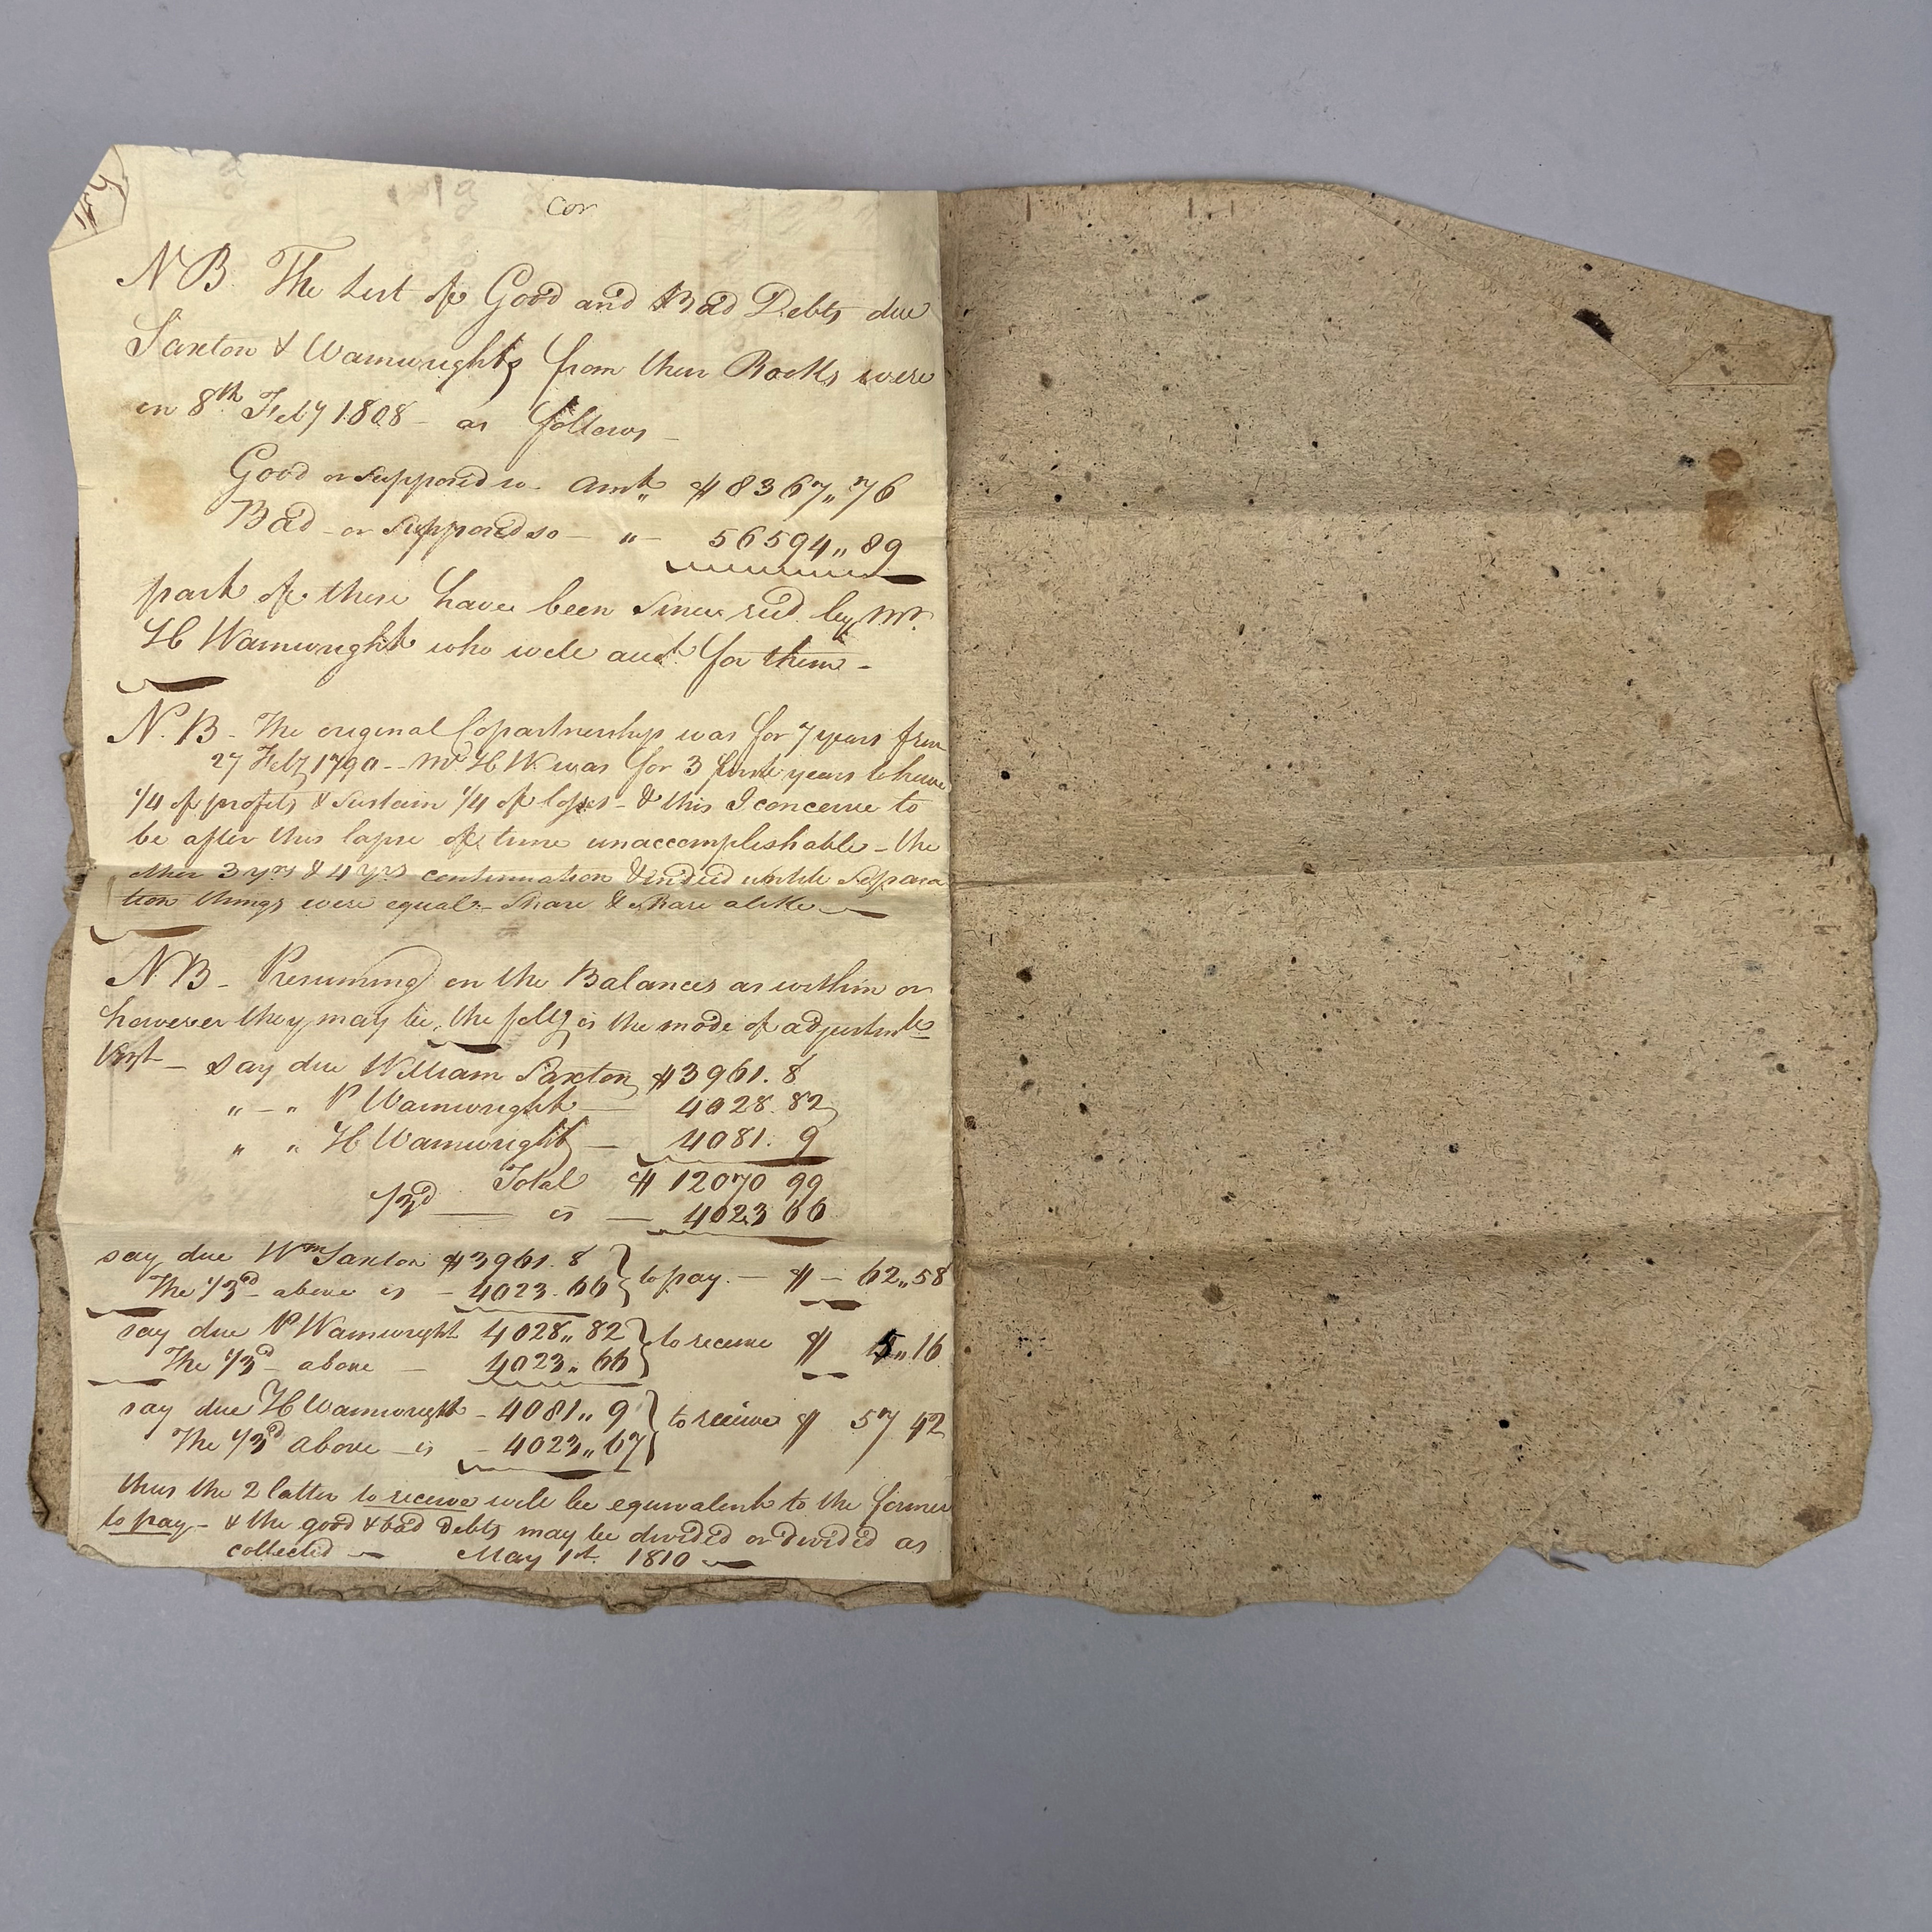 Cor
N B. The List of Good and Bad Debts due
Saxton & Wainwrights from their Books were
on 8th Feby 1808 - as follows -
Good or supposed so - Amt „ $ 8367„76
Bad - or Supposed so - „ - 56594„89
part of these have been since recd. by Mr.
H Wainwright who will acct. for them -
N. B - The original Copartnership was for 7 years from
27 Feby 1790 - - Mr. H W. was for 3 first years to have
1/4 of profits & sustain 1/4 of loss - & this I conceive to
be after this lapse of time unaccomplishable - the
other 3 yrs & 4 yrs continuation & indeed untill Separa
tion things were equal - Share & Share alike
N. B - Presuming on the Balances as within or
however they may be, the follg is the mode of adjustmt
Vizt - Say due William Saxton $ 3961. 8
„ - „ P Wainwright - 4028. 82
„ „ H Wainwright - 4081. 9
Total $ 12070 99
1/3d - is - 4023 66
say due Wm Saxton $ 3961. 8 } to pay. - $ - 62„58
The 1/3d above is - 4023. 66
say due P Wainwright 4028„ 82 } to receive $ 5„16
The 1/3d - above - 4023„ 66
say due H Wainwright - 4081„ 9 } to receive $ 57 42
The 1/3d above - is - 4023„ 67
thus the 2 latter to receive will be equivalent to the former
to pay - & the good & bad Debts may be divided or divided as
collected - May 1st. 1810